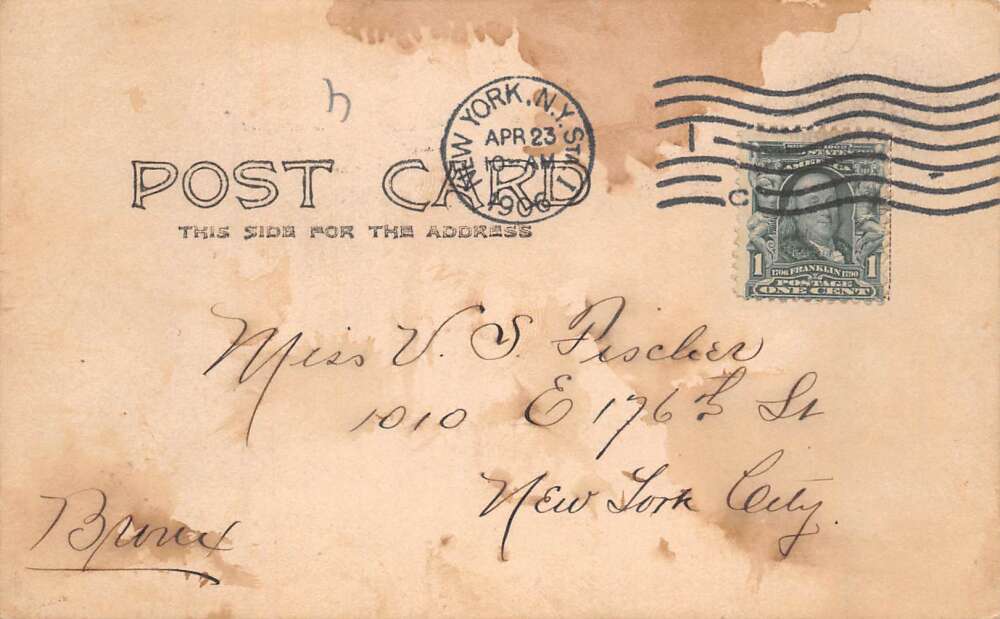 NEW YORK, N.Y. STA. 1
APR 23
10- AM
1906
SERIES 1902
UNITED STATES
OF AMERICA
1 1706 FRANKLIN 1790 1
POSTAGE
ONE CENT
POST CARD
THIS SIDE FOR THE ADDRESS
Miss V. S. Fischer
1010 E 176th St
New York City.
Bronx